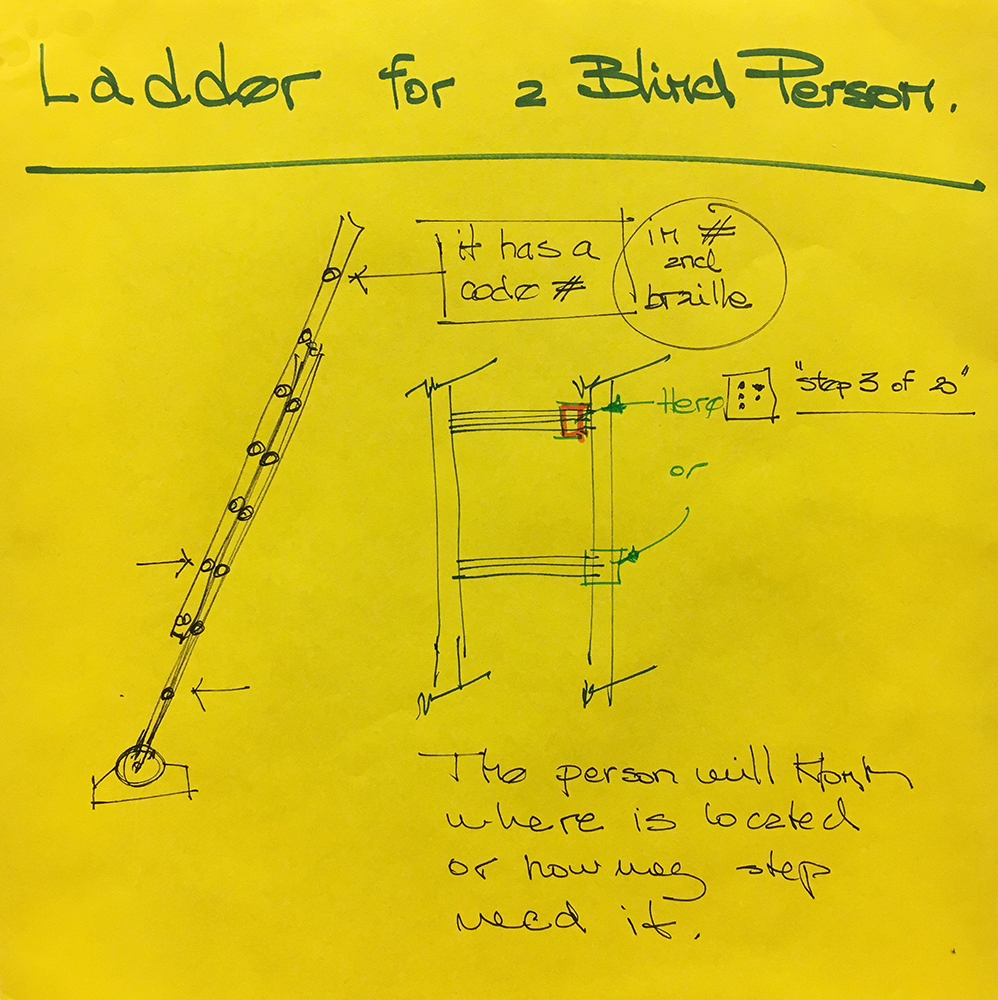 Ladder for a Blind Person.
it has a
code #
in #
and
braille
Here
"step 3 of 20"
or
The person will
where is located
or how many step
need it.